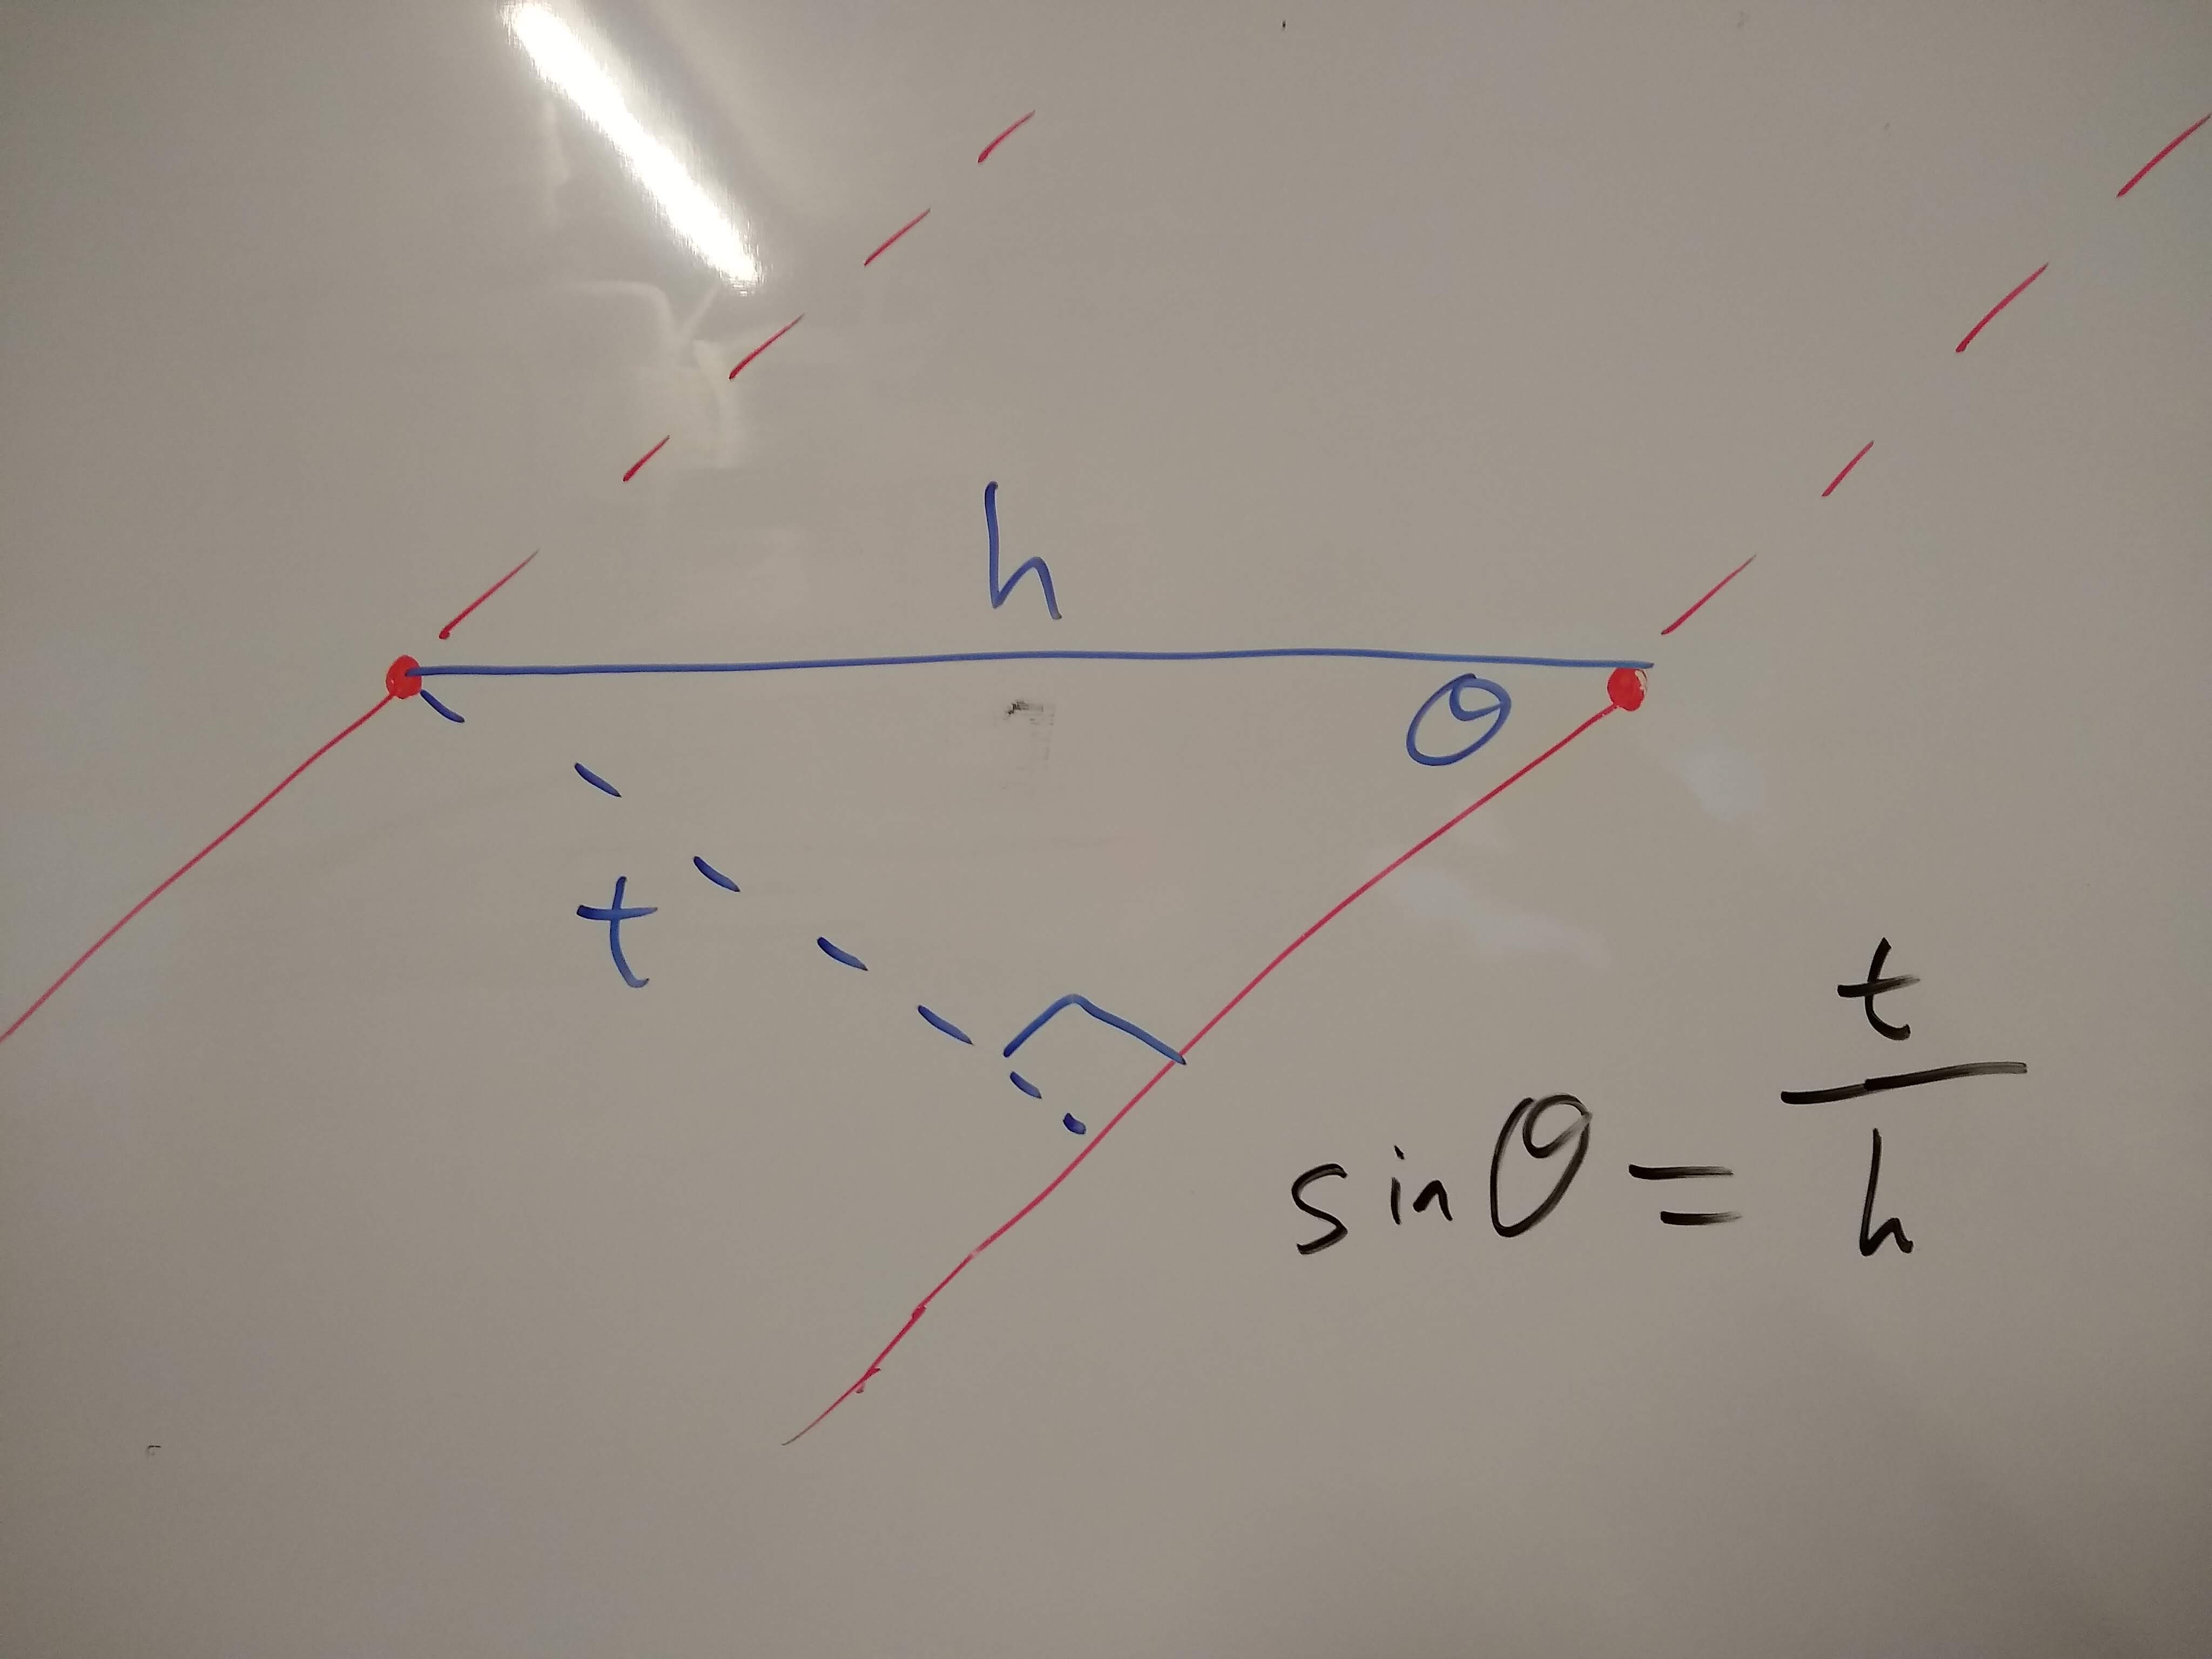 h
θ
t
sinθ = t/h